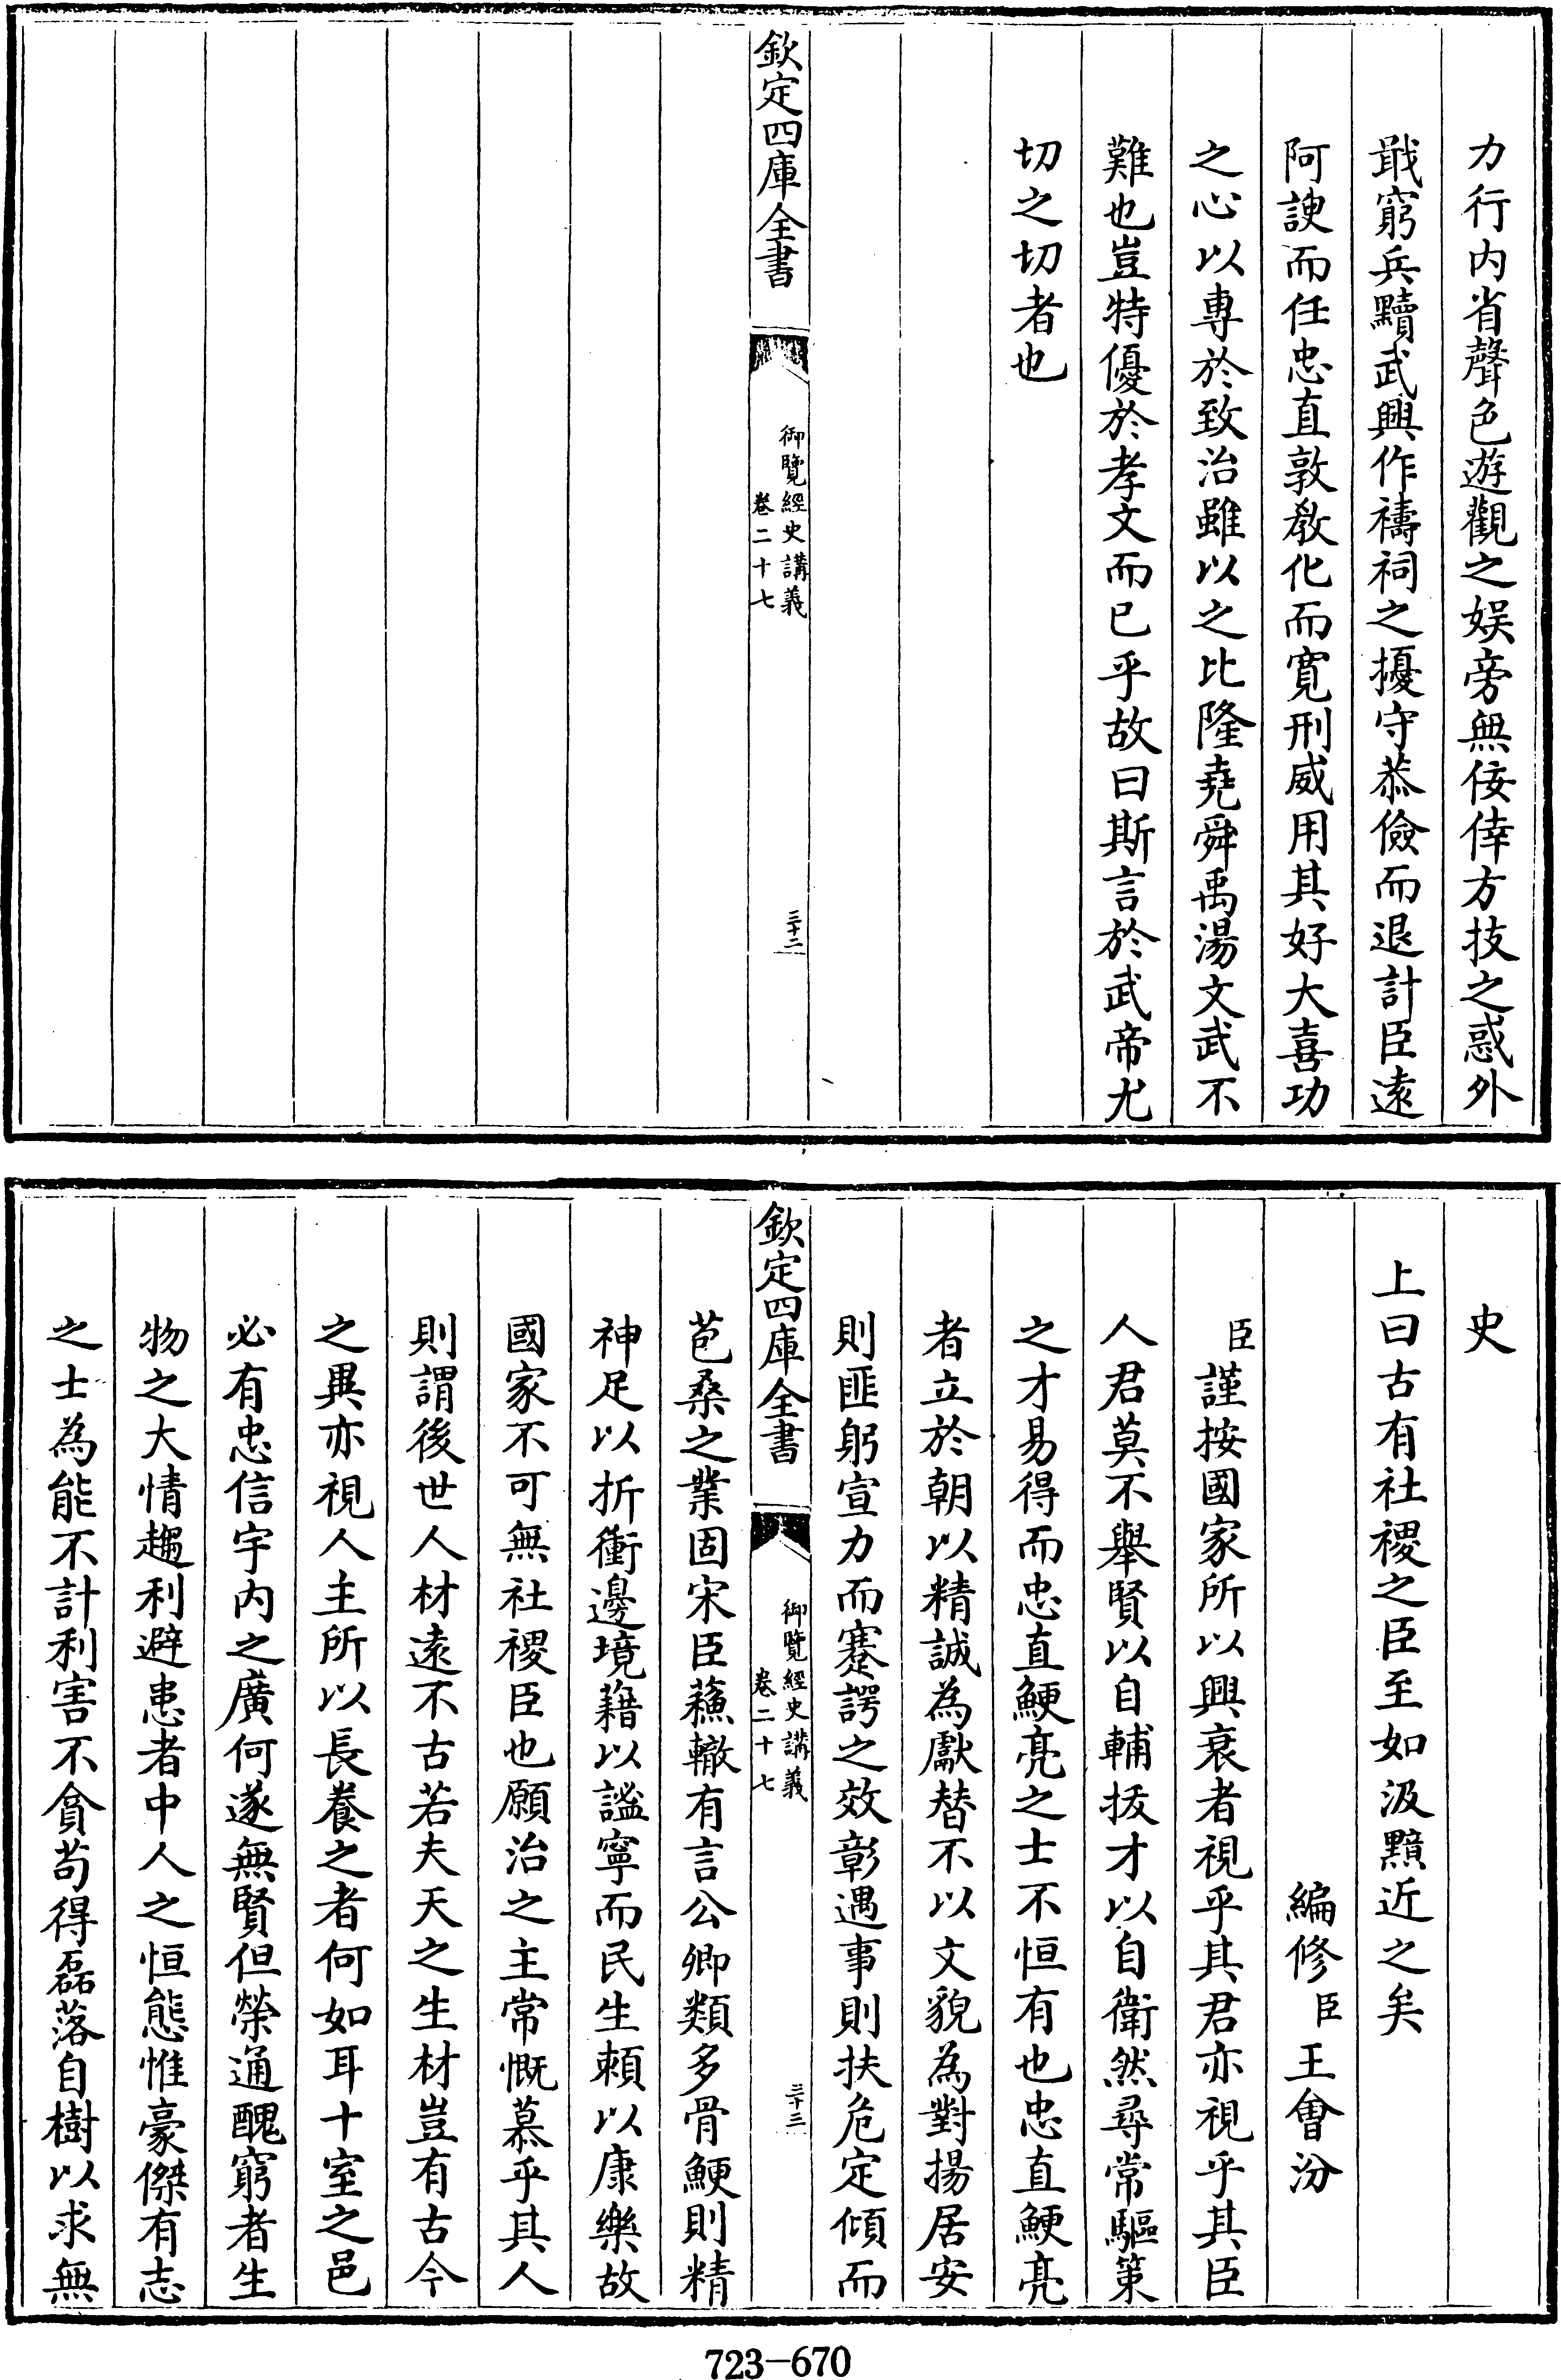 力行内省聲色遊觀之娱旁無佞倖方技之惑外
戢窮兵黷武興作禱祠之擾守恭儉而退計臣遠
阿諛而任忠直敦教化而寛刑威用其好大喜功
之心以專於致治雖以之比隆堯舜禹湯文武不
難也豈特優於孝文而已乎故曰斯言於武帝尤
切之切者也
欽定四庫全書
御覽經史講義
卷二十七
三十二
史
上曰古有社稷之臣至如汲黯近之矣
編修臣王會汾
臣謹按國家所以興衰者視乎其君亦視乎其臣
人君莫不舉賢以自輔拔才以自衛然尋常驅策
之才易得而忠直鯁亮之士不恒有也忠直鯁亮
者立於朝以精誠為獻替不以文貌為對揚居安
則匪躬宣力而蹇諤之效彰遇事則扶危定傾而
欽定四庫全書
御覽經史講義
卷二十七
三十三
苞桑之業固宋臣蘓轍有言公卿類多骨鯁則精
神足以折衝邊境藉以謐寧而民生頼以康樂故
國家不可無社稷臣也願治之主常慨慕乎其人
則謂後世人材遠不古若夫天之生材豈有古今
之異亦視人主所以長養之者何如耳十室之邑
必有忠信宇内之廣何遂無賢但榮通醜窮者生
物之大情趨利避患者中人之恒態惟豪傑有志
之士為能不計利害不貪苟得磊落自樹以求無
723-670